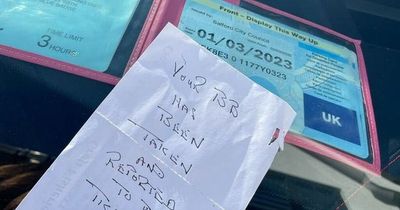 TIME LIMIT
3
HOURS
Front – Display This Way Up
Salford City Council
01/03/2023
0 1177Y0323
UK
YOUR BB
HAS
BEEN
TAKEN
AND
REPORTED
TO